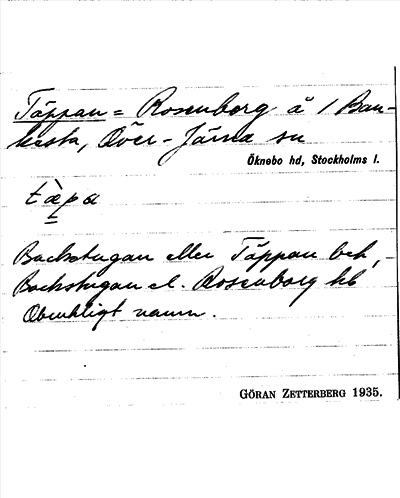 Täppan = Rosenborg å 1 Ban-
kesta, Över-Järna sn
Öknebo hd, Stockholms l.
tæ̀pa
Backstugan eller Täppan bek,
Backstugan el. Rosenborg hb
Obrukligt namn.
GÖRAN ZETTERBERG 1935.